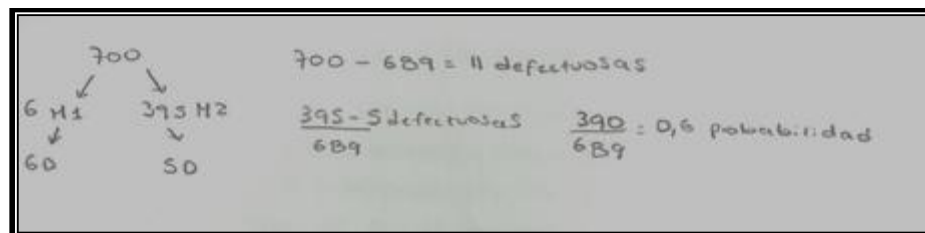 700
6 M1 395 M2
6D 5D
700 - 689 = 11 defectuosas
395 - 5 defectuosas
689
390 = 0,6 pobabilidad
689